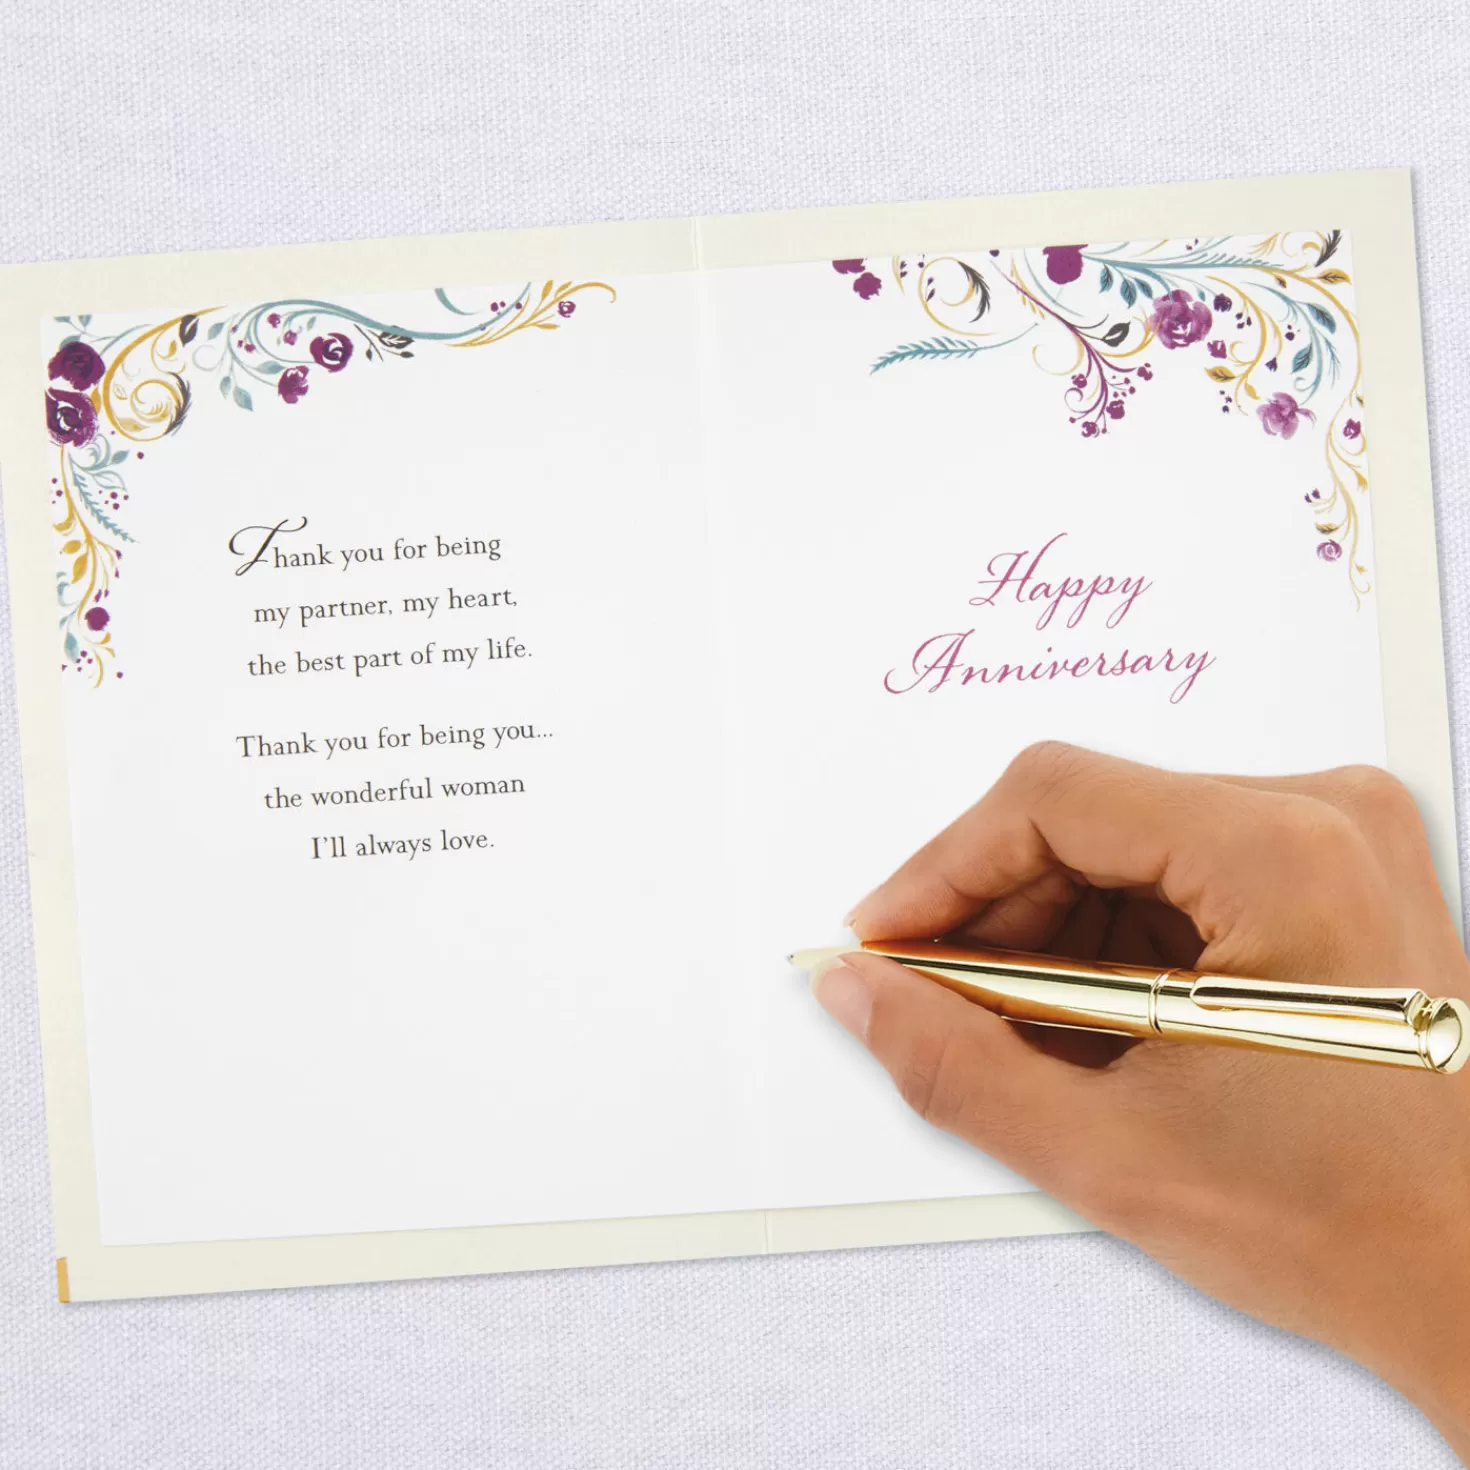 Thank you for being
my partner, my heart,
the best part of my life.
Thank you for being you...
the wonderful woman
I'll always love.
Happy
Anniversary